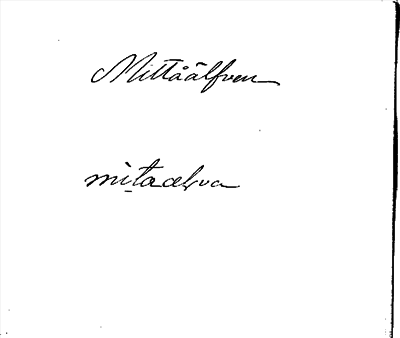 Mittåälfven
mitaælva